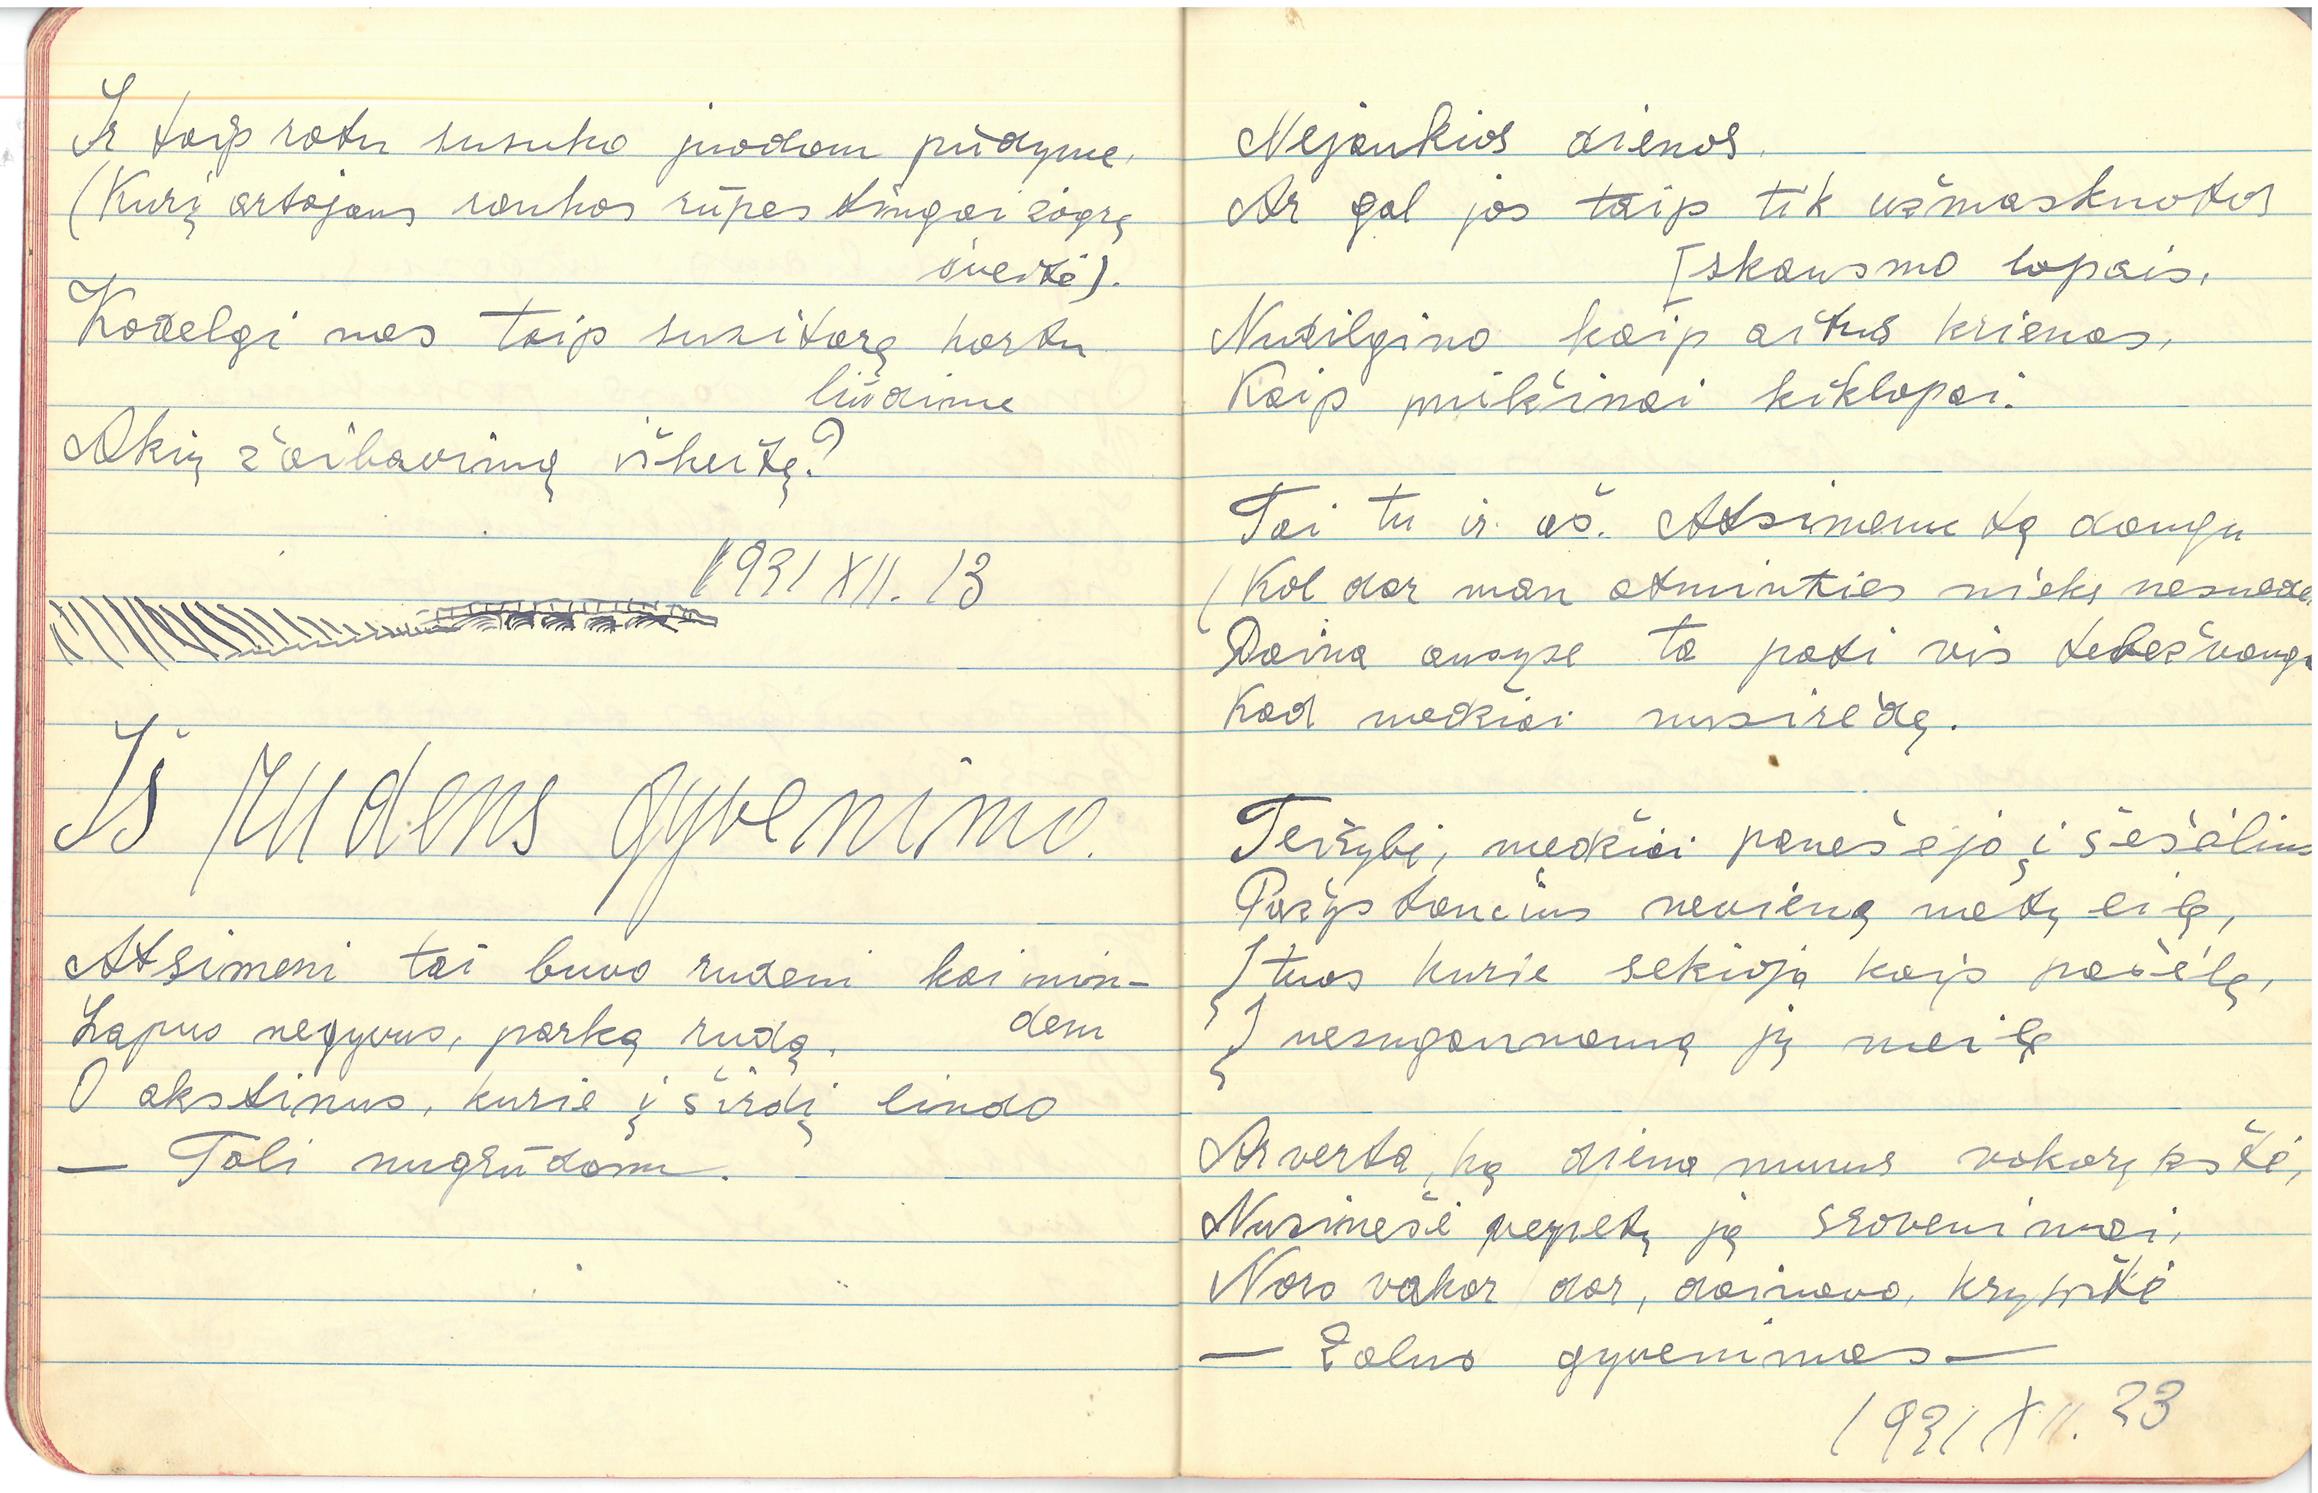 Ir taip ratu susuko juodam pūdyme,
(Kurį artojaus rankos rūpestingai žagrę
švertė).
Kodelgi mes taip susitarę kartu
liūdime
Akių žaibavimą iškeitę?
1931 XII. 13
Iš rudens gyvenimo.
Atsimeni tai buvo rudenį kai min-
dem
Lapus negyvus, parką rudą,
O akstinus, kurie į širdį lindo
— Toli nugrūdom.
Nejaukios dienos.
Ar gal jos taip tik užmaskuotos
[skausmo lopais,
Nusilgino kaip aitrus krienas,
Kaip milžinai kiklopai.
Tai tu ir aš. Atsimenu tą dangų
(Kol dar man atminties nieks nesuėdė
Daina ausyse ta pati vis tebežvanga
Kad medžiai nusirėdę.
Teisybė, medžiai panešėjo į šešėlius
Pažįstančius nevieną metų eilę,
Į tuos kurie sekioja kaip pašėlę,
Į nesugaunamą jų meilę
Ar verta, ką diena mums vakarykštė,
Nusinešė verpetų ją srovenimai,
Nors vakar dar, dainavo, krykštė
— Žalias gyvenimas —
1931 XII. 23